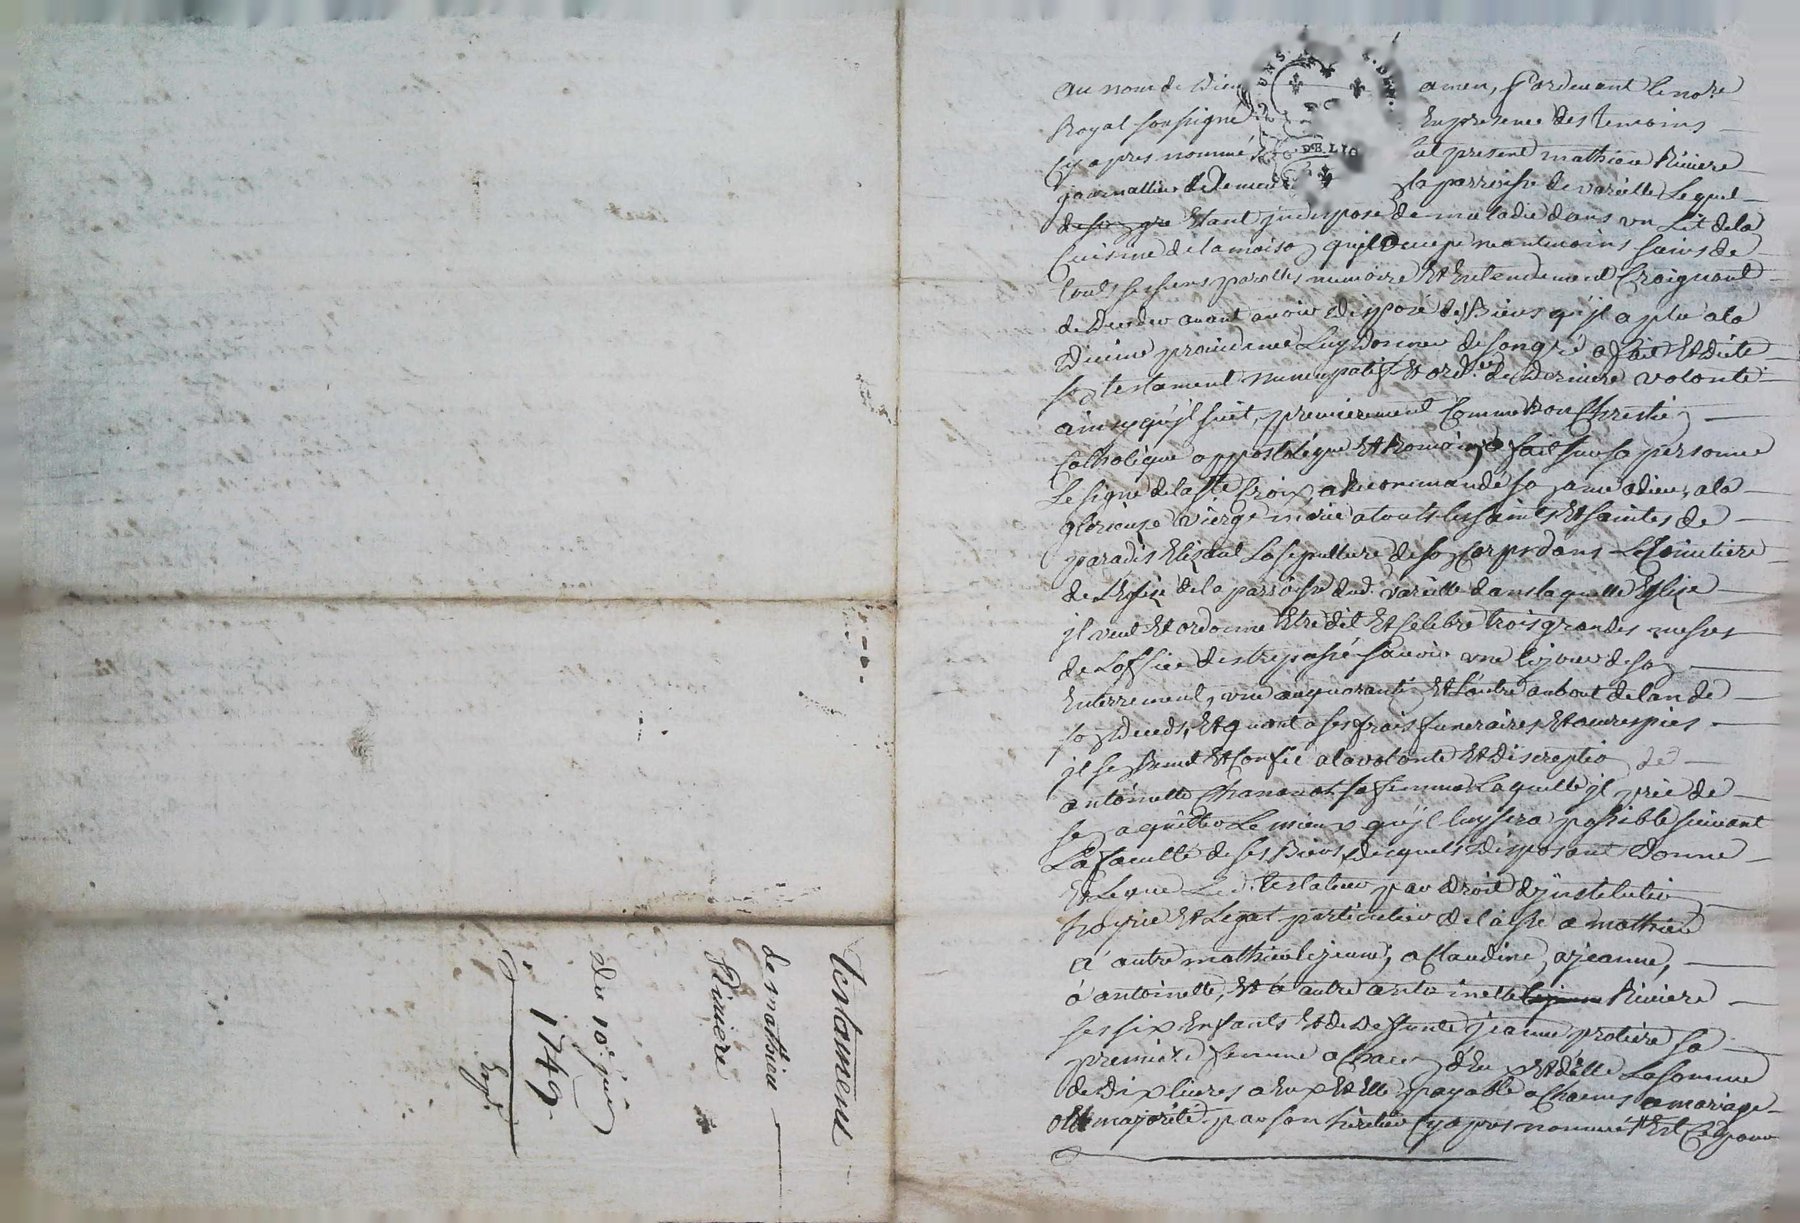 testament
de mathieu
Riviere
Du 10e juin
1749
au nom de Dieu amen, Pardevant le no.re
Royal soussigné En presence des temoins
Cy apres nommés fut present mathieu Riviere
journallier de la parroisse de varielle Lequel
de son gre Etant jndispose de maladie dans un Lit de la
Cuisine de la maison qu'jl occupe neantmoins sains de
touts ses sens parolles memoire Et Entendement Craignant
de Deceder avant avoir Dispose des Biens qu'jl a plu a la
Divine providence Luy Donner de son gré a fait Et Dicte
son testament nuncupatif Et ord.ce de Derniere volonte
ainsy qu'jl suit, premierement Comme Bon Chrestien
Catholique appostolique Et Romain a fait sur sa personne
Le signe de la Ste Croix, a Recommandé son ame a dieu, a la
glorieuse vierge marie a touts les saints Et saintes de
paradis Elisant La sepulture de son Corps dans Le Cimetiere
de L'Eglise de la parroisse dud. varielle dans laquelle Eglise
jl veut Et ordonne Etre dit Et Celebre trois grandes messes
de Loffice des trepassés sçavoir une le jour de son
Enterrement, une au quarante Et L'autre au bout de l'an de
son Deceds, Et quant a ses frais funeraires Et œuvres pies
jl se Remet Et Confie a la volonte Et Discreption de
antoinette sa femme Laquelle jl prie de
s'en aquitter Le mieux qu'jl luy sera possible suivant
La faculté de ses Biens, Desquels Disposant Donne
Et Legue Led. testateur par Droit d'jnstitution
hoyrie Et Legat particulier De laisse a mathieu
a autre mathieu le jeune, a Claudine, a jeanne,
a antoinette, Et a autre antoinette le jeune Riviere
ses six Enfants Et de Deffunte jeanne protiere sa
premiere femme a Chacun d'Eux Et d'Elle La somme
de Dix livres a Eux Et Elle payable a Chacuns a mariage
ou majorité par son heritier Cy apres nommé Et Ce pour